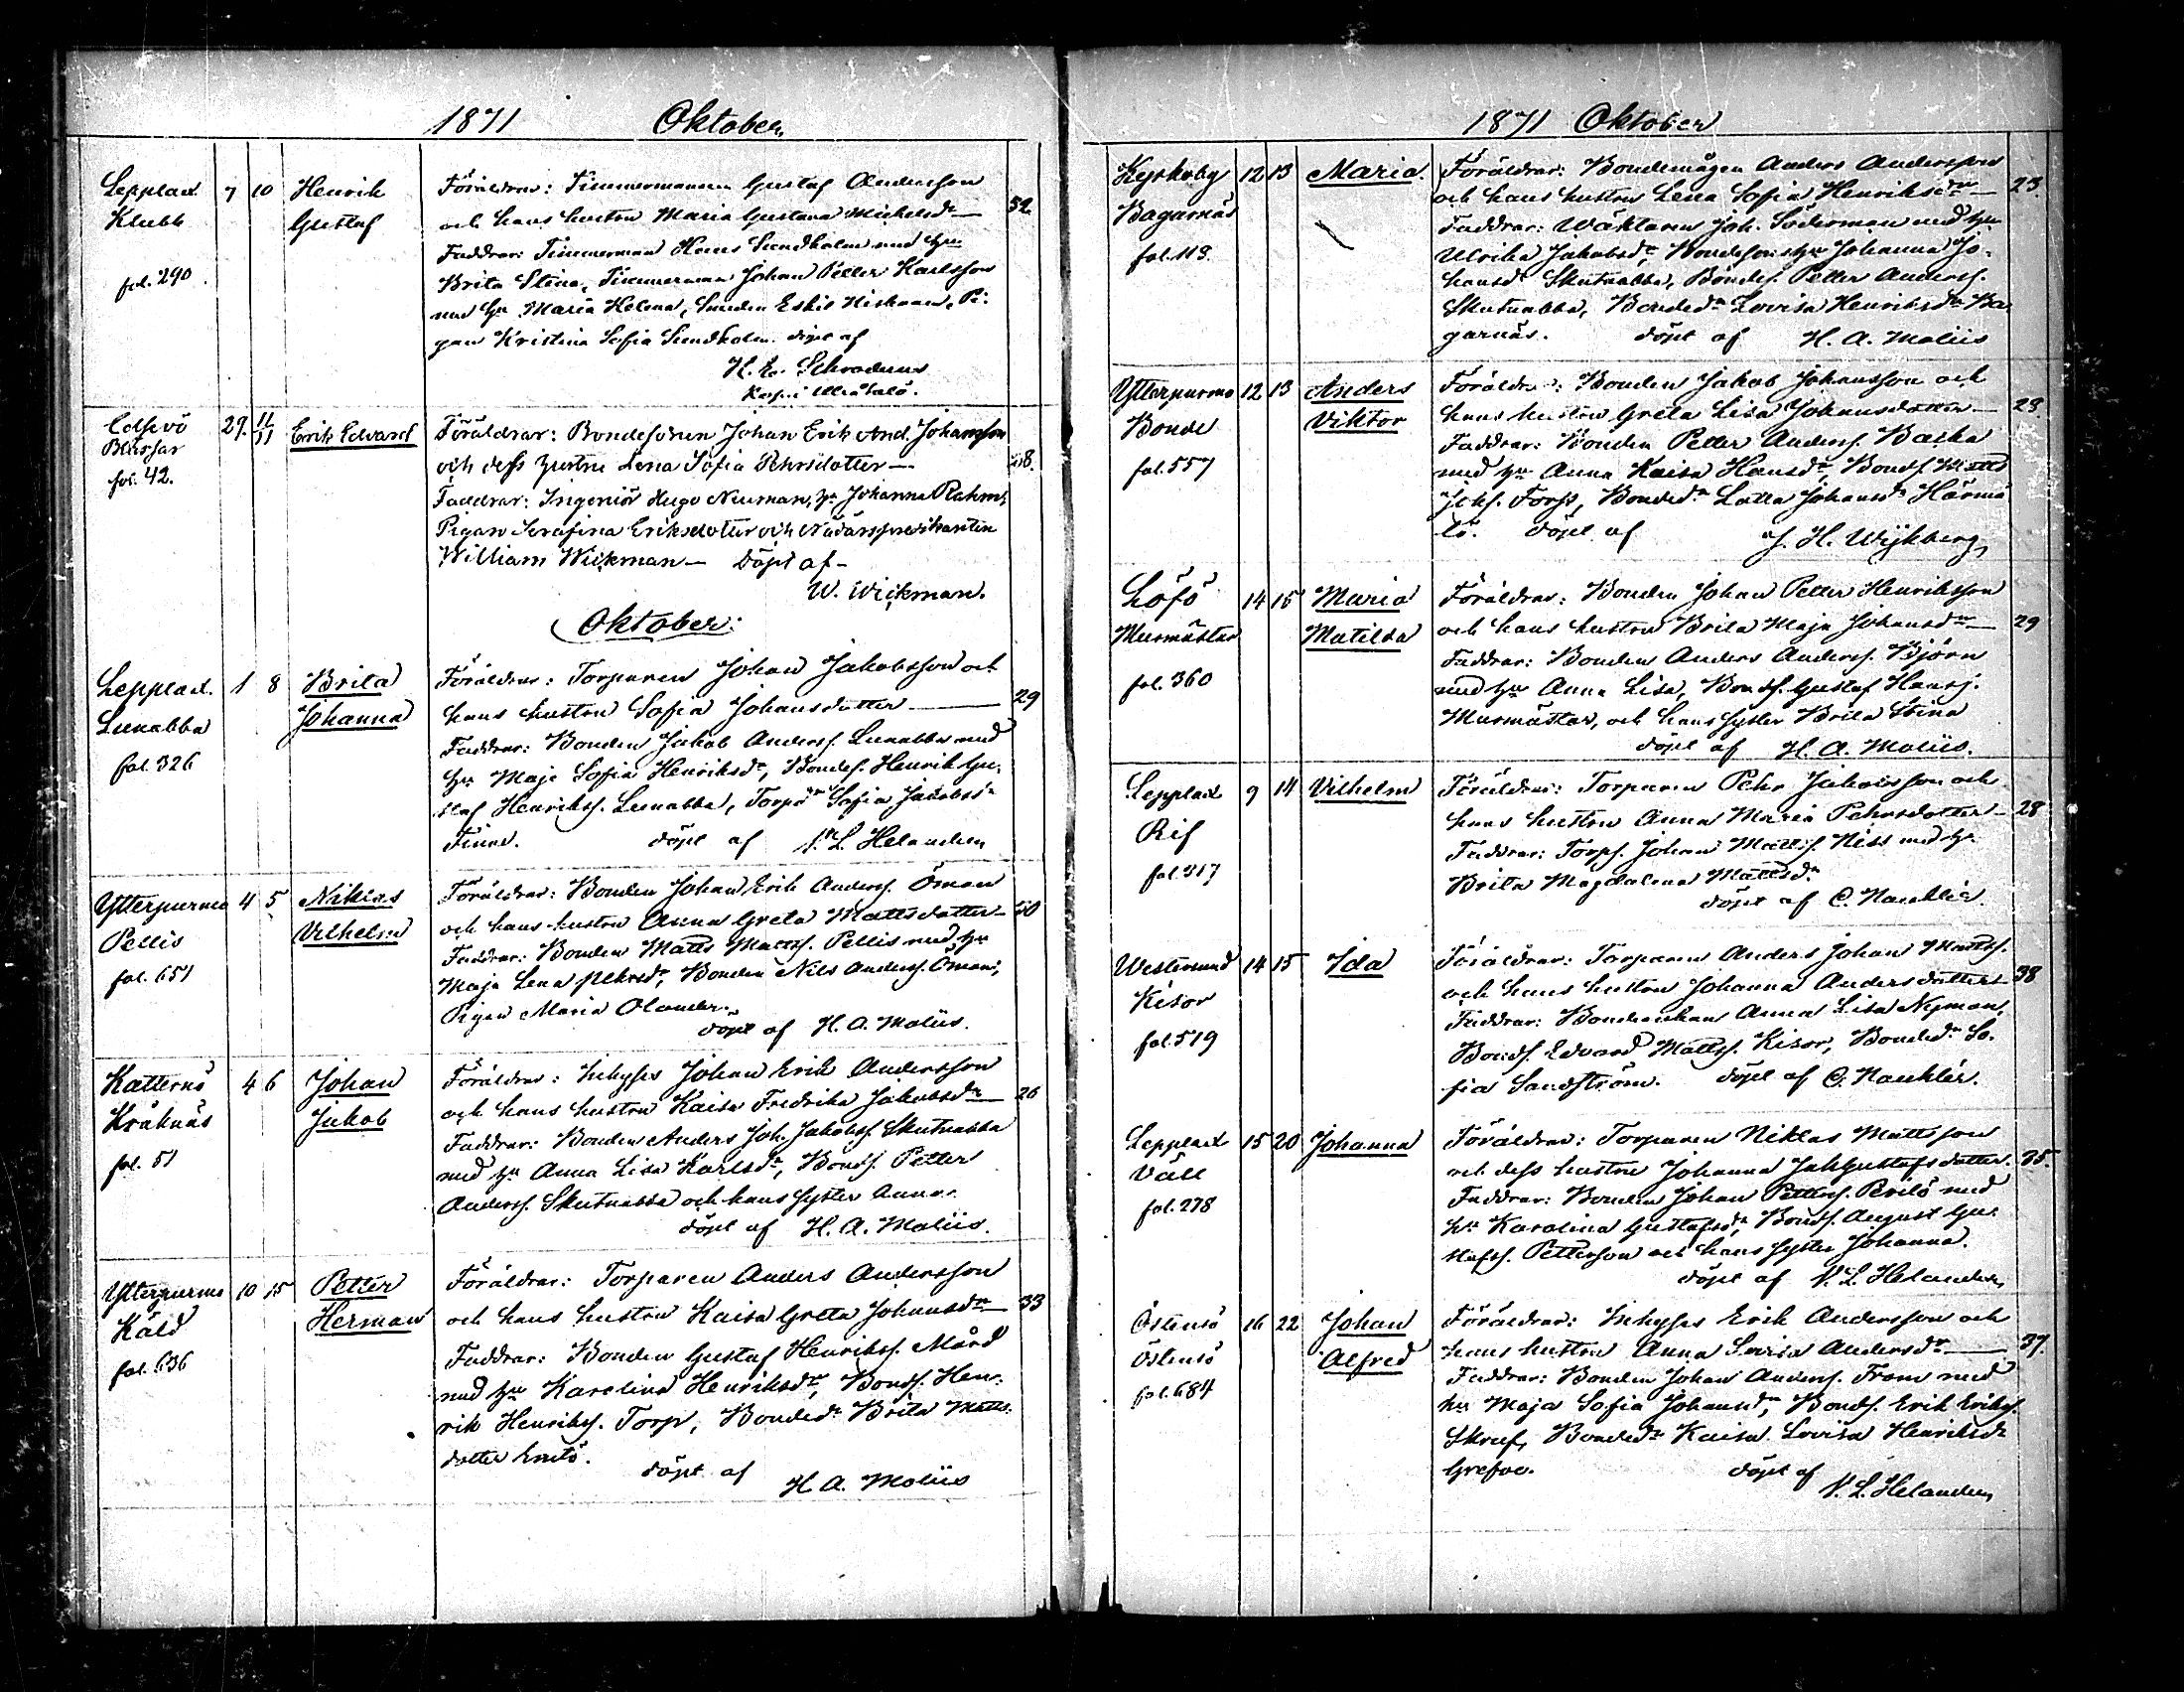 1871 Oktober.
Lepplax 7 10 Henrik Föräldrar: Timmermannen Gustaf Andersson
Klubb Gustaf och hans hustru Maria Gustava Michelsdr — 32
Faddrar: Timmerman Hans Sundholm med hu
fol. 290. Brita Stina, Timmerman Johan Petter Karlsson
med hu Maria Helena, Smeden Eskil Niskanen, Pi-
gan Kristina Sofia Sundholm. döpt af
H. L. Schroderus
Kapn i
29. 11/11 Erik Edvard Föräldrar: Bondesonen Johan Erik And. Johansson
Blussar och dess hustru Lena Sofia Pehrsdotter — 28.
fol. 42. Faddrar: Ingeniör Hugo Neuman, hu Johanna Rahm,
Pigan Serafina Eriksdotter och Nådårspredikanten
William Wickman — Döpt af —
W. Wickman.
Oktober:
Lepplax. 1 8 Brita Föräldrar: Torparen Johan Jakobsson och
Lunabba Johanna hans hustru Sofia Johansdotter — 29
fol. 326 Faddrar: Bonden Jakob Anderss. Lunabba med
hu Maja Sofia Henriksdr, Bondes. Henrik Gu-
staf Henrikss. Lunabba, Sofia Jakobsdr
Finne. döpt af N. L. Helander
Ytterpurmo 4 5 Nikias Föräldrar: Bonden Johan Erik Anderss. Öman
Pellis Vilhelm och hans hustru Anna Greta Mattsdotter — 30
fol. 651 Faddrar: Bonden Matts Mattss. Pellis med hu
Maja Lena Pehrsdr, Bonden Nils Anderss. Öman,
Pigan Maria Olander.
döpt af H. A. Moliis.
Katternö 4 6 Johan Föräldrar: Inhyses Johan Erik Andersson
Kråknäs Jakob och hans hustru Kaisa Fredrika Jakobsdr — 26
fol. 51 Faddrar: Bonden Anders Joh. Jakobss. Skutnabba
med hu Anna Lisa Karlsdr, Bonds. Petter
Anderss. Skutnabba och hans syster Anna.
döpt af H. A. Moliis.
Ytterpurmo 10 15 Petter Föräldrar: Torparen Anders Andersson
Käld Herman och hans hustru Kaisa Greta Johansdr — 33
fol. 636 Faddrar: Bonden Gustaf Henrikss. Mård
med hu Karolina Henriksdr, Bonds. Hen-
rik Henrikss. Torp, Bondedr Brita Matts-
dotter
döpt af
H. A. Moliis
1871 Oktober
12 13 Maria. Föräldrar: Bondemågen Anders Andersson
Bagarnäs och hans hustru Lena Sofia Henriksdr — 23.
fol. 113. Faddrar: Wäktaren Joh. Söderman med hu
Ulrika Jakobsdr, Bondesons hu Johanna Jo-
hansdr Skutnabba, Bondes. Petter Anderss.
Skutnabba, Bondedr Lovisa Henriksdr Ba-
garnäs. döpt af H. A. Moliis
Ytterpurmo 12 13 Anders Föräldrar: Bonden Jakob Johansson och
Bonde Viktor hans hustru Greta Lisa Johansdotter — 29
fol. 557 Faddrar: Bonden Petter Anderss. Backa
med hu Anna Kaisa Hansdr, Bonds. Matts
Johs. Torp, Bondedr Johansdr Härmä-
lä. döpt af J. H. Wijkberg
Löfö 14 15 Maria Föräldrar: Bonden Johan Petter Henriksson
Murmästar Matilda och hans hustru Brita Maja Johansdr — 29
fol. 360 Faddrar: Bonden Anders Anderss. Björn
med hu Anna Lisa, Bonds. Gustaf Hanss.
Murmästar, och hans syster Brita Stina
döpt af H. A. Moliis.
Lepplax 9 14 Vilhelm Föräldrar: Torparen Pehr Jakobsson och
Rif hans hustru Anna Maria Pehrsdotter — 28
fol. 317 Faddrar: Torps. Johan Mattss. Niss med hu
Brita Magdalena Mattsdr
döpt af C. Nauklér.
Westersund 14 15 Ida Föräldrar: Torparen Anders Johan Mattss.
Kisor och hans hustru Johanna Andersdotter — 38
fol. 519 Faddrar: Bondeenkan Anna Lisa Nyman,
Bonds. Edvard Mattss. Kisor, Bondedr So-
fia Sandström. döpt af C. Nauklér.
Lepplax 15 20 Johanna Föräldrar: Torparen Niklas Mattsson
Väll och dess hustru Johanna Joh. Gustafsdotter. 35.
fol. 278 Faddrar: Bonden Johan Petterss. Perilö med
hu Karolina Gustafsdr, Bonds. August Gu-
stafs. Petterson och hans syster Johanna.
döpt af N. L. Helander
Östensö 16 22 Johan Föräldrar: Inhyses Erik Andersson och
Östensö Alfred hans hustru Anna Lovisa Andersdr — 37.
fol. 684 Faddrar: Bonden Johan Anderss. From med
hu Maja Sofia Johansdr, Bonds. Erik Erikss.
Skruf, Bondedr Kaisa Lovisa Henriksdr
döpt af
N. L. Helander